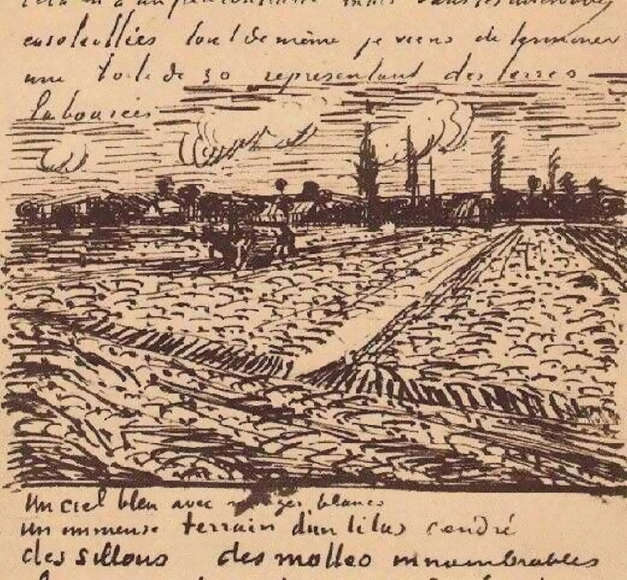 ensoleillées tout de même je viens de terminer
une toile de 30 representant des terres
labourées
Un ciel bleu avec nuages blancs
un immense terrain d'un lilas cendré
des sillons des mottes innombrables